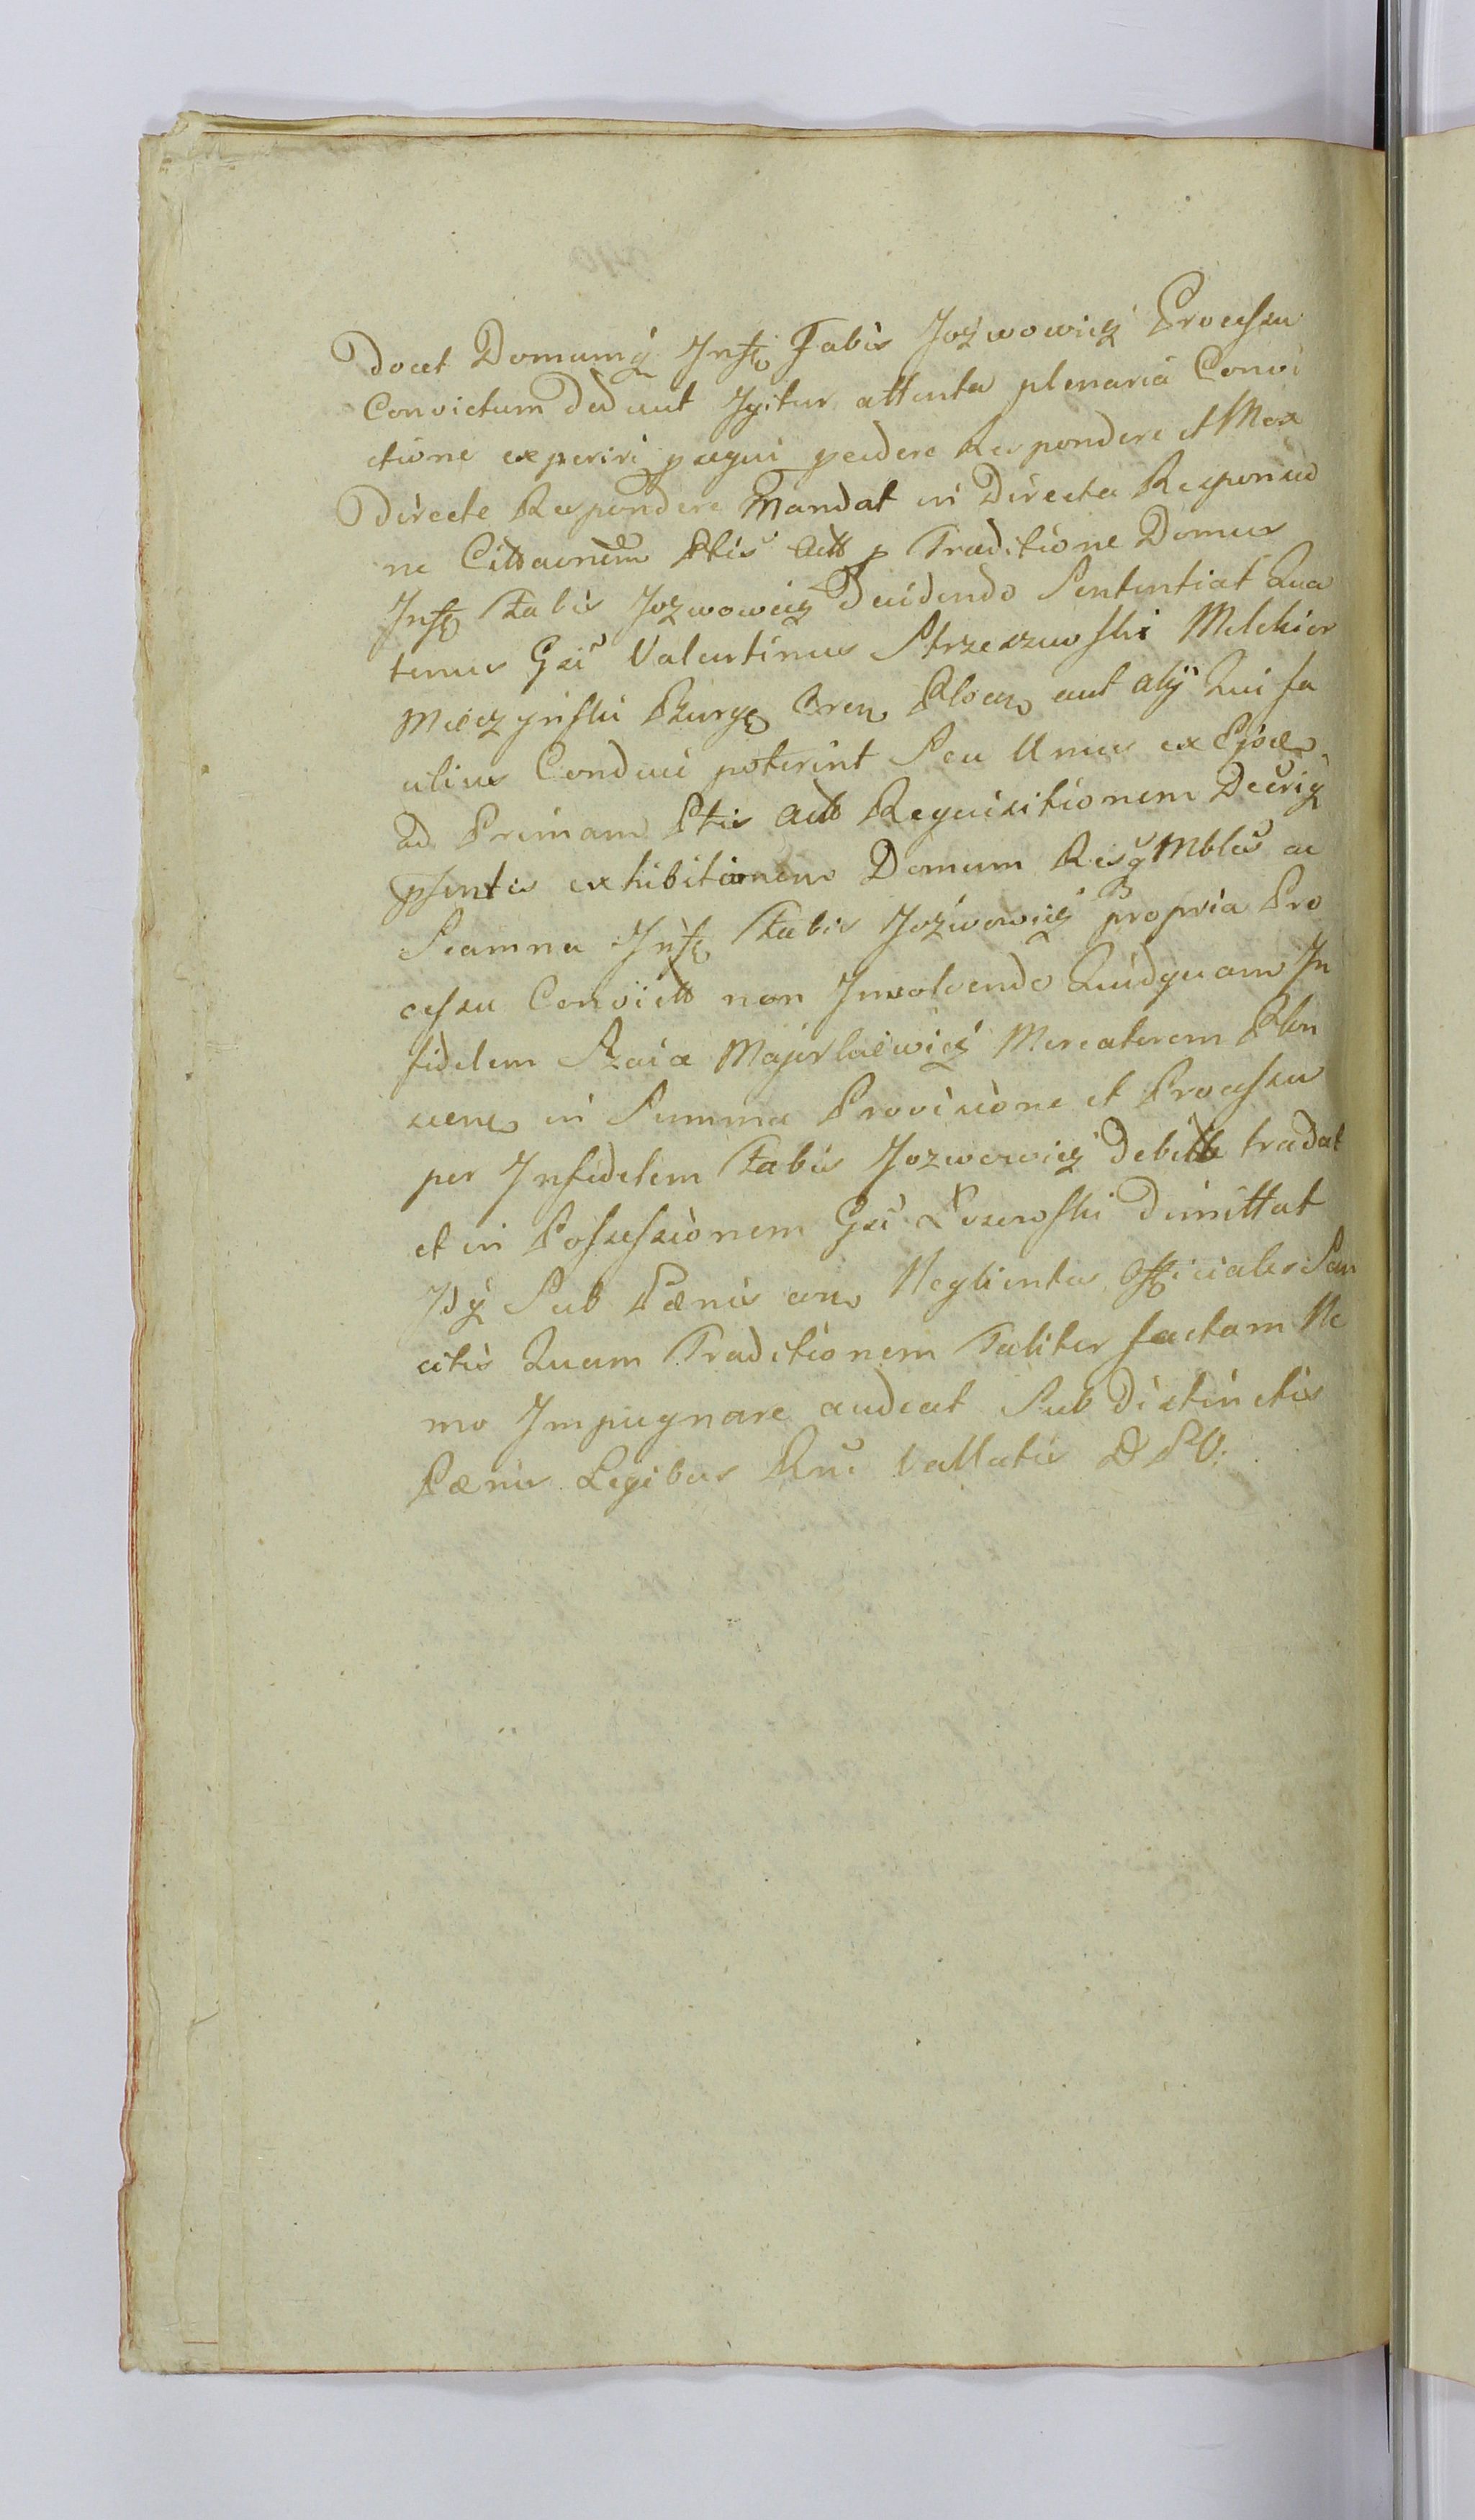 docet Domumq Inf Fabis Jozwowicz Processu
Convictum ded aut Igitur attenta plenaria Convi
ctione experiri psequi pcedere Respondere et Mox
Directe Respondere Mandat in Directa Responsio
ne Cittaonem Ptis Act p Traditione Domus
Inf Fabis Jozwowicz Decidendo Sententiat Qua
tenus Gsi Valentinus Strzeszewski Melchior
Miczynski Burg Aren Plocen aut alij Qui fa
cilius Conduci poterint Seu Unus ex Ejsd
ad Primam Ptis Act Requisitionem Decriq
psentis exhibitionem Domum Resq Mbles ac
Scamna Inf Fabis Jozwowicz propria Pro
cessu Convict non Insolvendo Quidquam In
fidelem Szaia Majerlaiewicz Mercatorem Plon
scens in Summa Provisione et Processu
per Infidelem Fabis Jozwowicz Debitt tradat
et in Possessionem Gsi Lozewski Dimittat
Idq Sub Pænis con Neglientes Officiales San
citis Quam Traditionem Taliter factam Ne
mo Impugnare audeat Sub Distinctis
Pænis Legibus Rni Vallatis D P V.